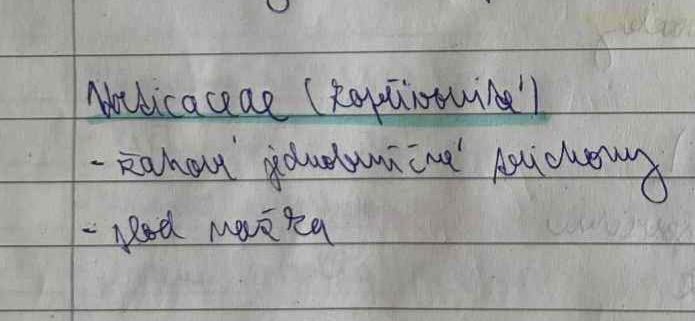 Urticaceae (kopřivovité)
- žahavé jednobuněčné trichomy
- plod nažka